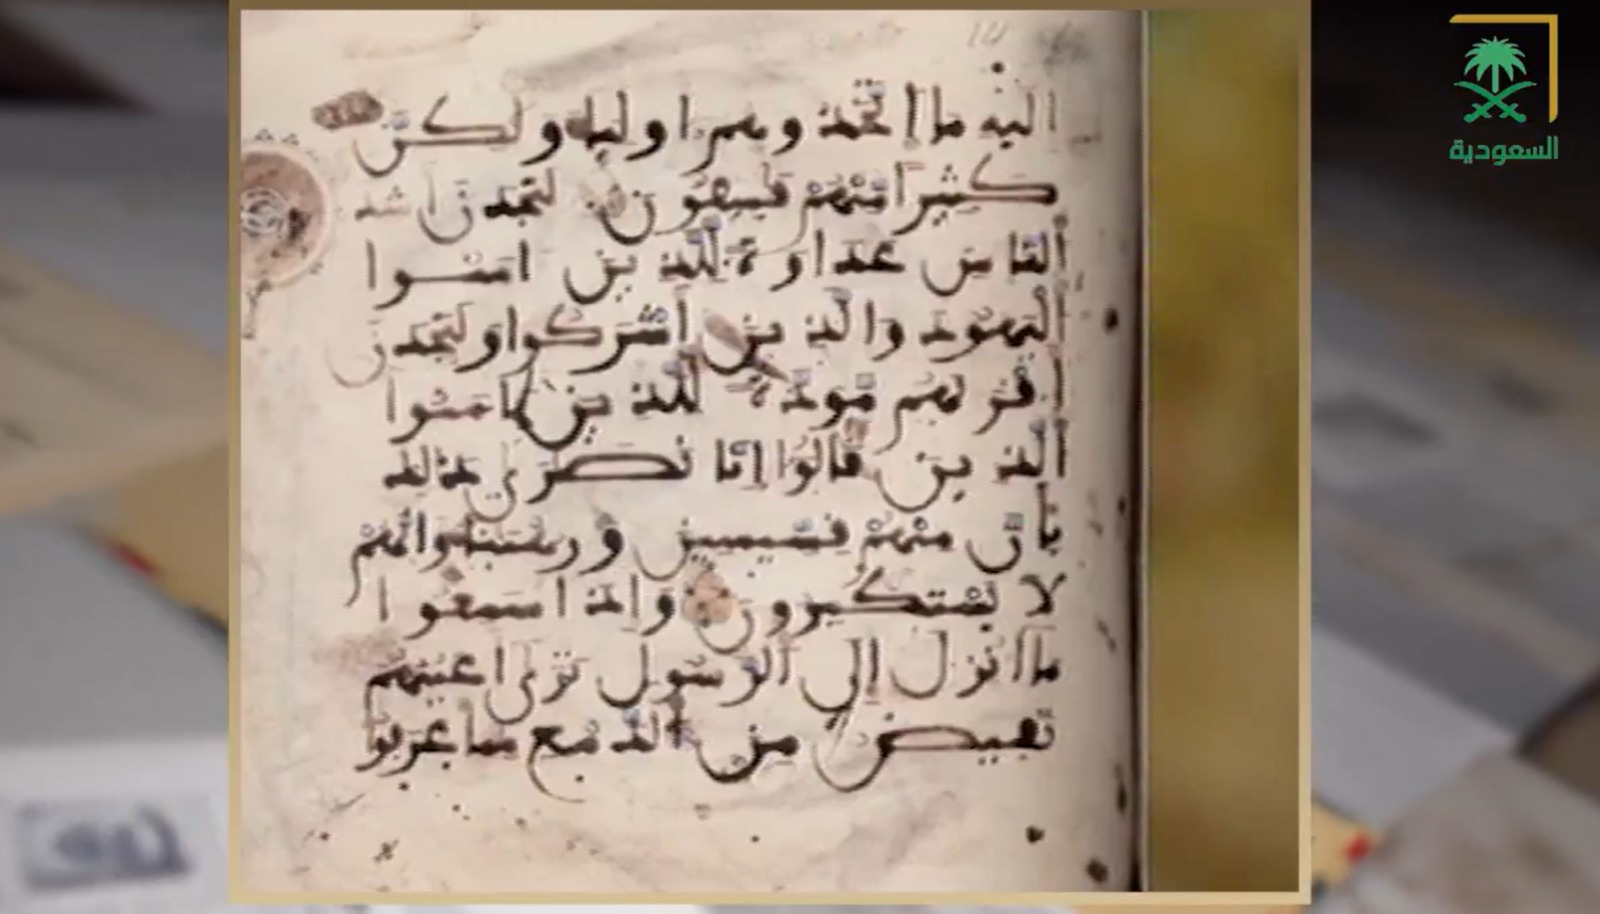 اليه ما اتخذوهم اوليا ولكن
كثيرا منهم فسقون لتجدن اشد
الناس عداوة للذين امنوا
اليهود والذين اشركوا ولتجدن
اقربهم مودة للذين امنوا
الذين قالوا انا نصرى ذلك
بان منهم قسيسين ورهبنا وانهم
لا يستكبرون واذا سمعوا
ما انزل الى الرسول ترى اعينهم
تفيض من الدمع مما عرفوا
السعودية